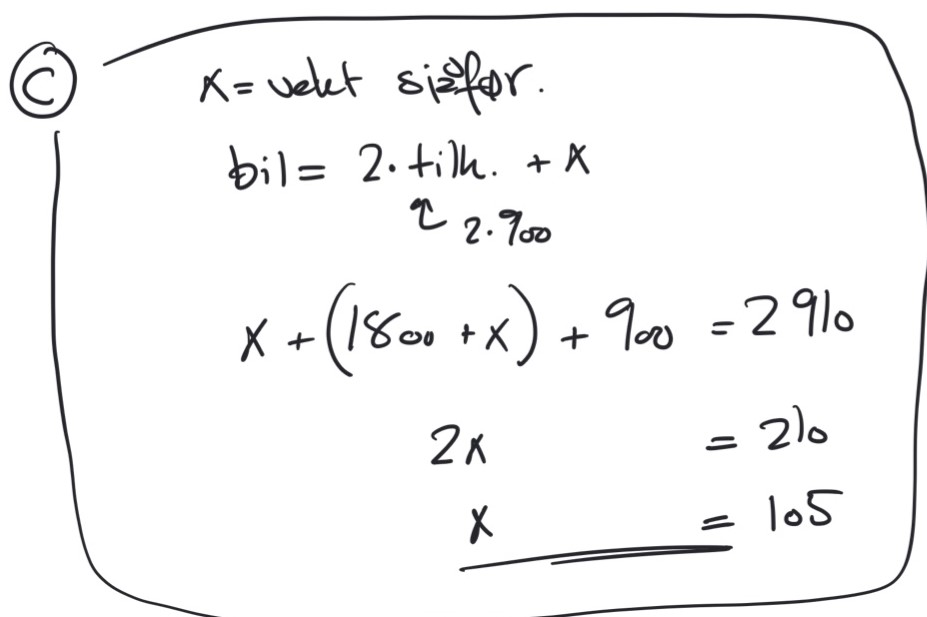 C
x = vekt sjåfør.
bil = 2·tilh. + x
↑ 2·900
x + (1800 + x) + 900 = 2910
2x = 210
x = 105